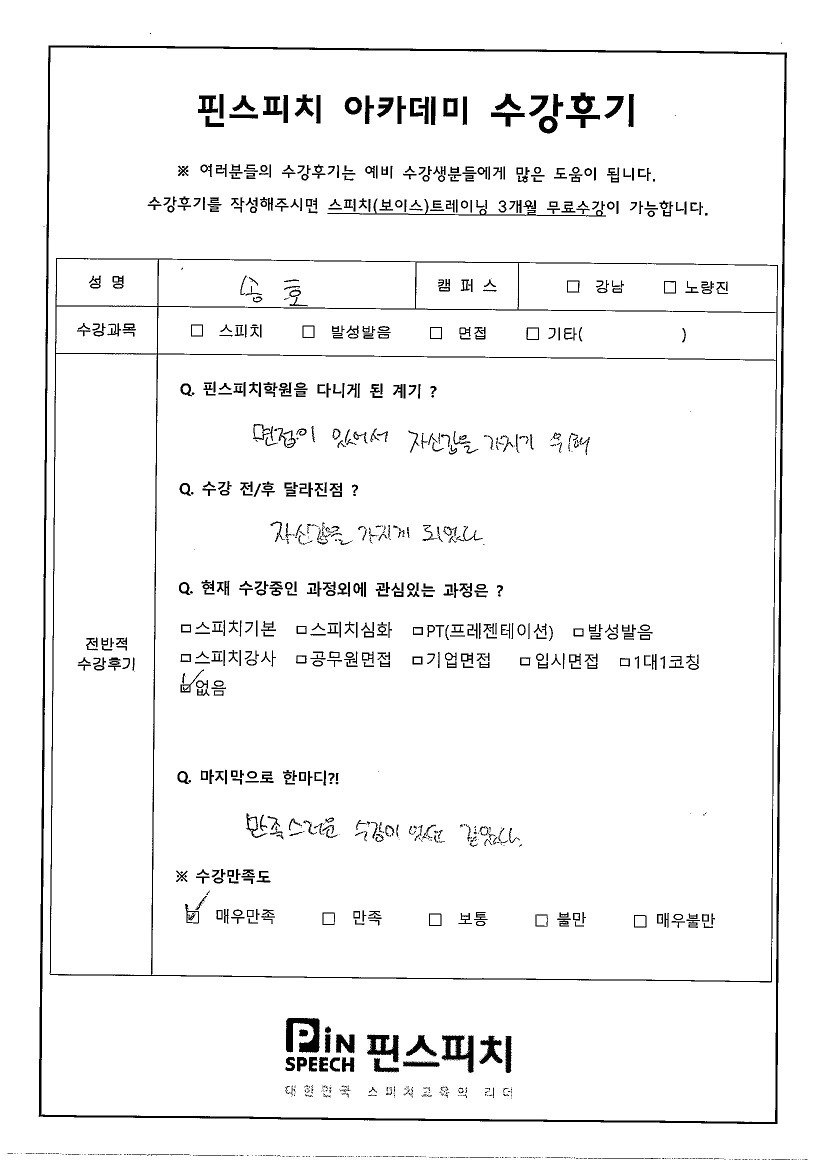 핀스피치 아카데미 수강후기
※ 여러분들의 수강후기는 예비 수강생분들에게 많은 도움이 됩니다.
수강후기를 작성해주시면 스피치(보이스)트레이닝 3개월 무료수강이 가능합니다.
성 명 송 호 캠 퍼 스 □ 강남 □ 노량진
수강과목 □ 스피치 □ 발성발음 □ 면접 □ 기타( )
Q. 핀스피치학원을 다니게 된 계기 ?
면접이 있어서 자신감을 가지기 위해
Q. 수강 전/후 달라진점 ?
자신감을 가지게 되었다.
Q. 현재 수강중인 과정외에 관심있는 과정은 ?
전반적
수강후기
□스피치기본 □스피치심화 □PT(프레젠테이션) □발성발음
□스피치강사 □공무원면접 □기업면접 □입시면접 □1대1코칭
☑없음
Q. 마지막으로 한마디?!
만족스러운 수강이 었던 같았다.
※ 수강만족도
☑ 매우만족 □ 만족 □ 보통 □ 불만 □ 매우불만
PiN
SPEECH 핀스피치
대한민국 스피치교육의 리더